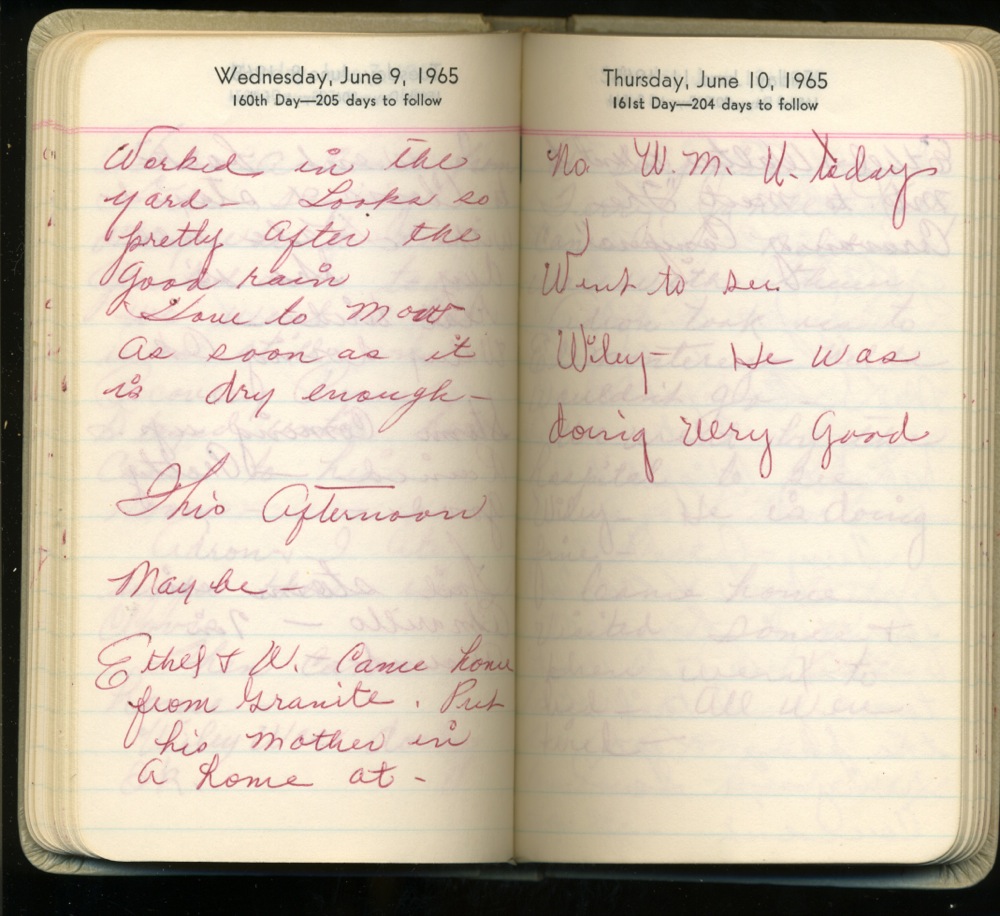 Wednesday, June 9, 1965
160th Day—205 days to follow
Worked in the
yard— Looks so
pretty After the
Good rain
Have to mow
As soon as it
is dry enough—
This Afternoon
May be—
Ethel & W. Came home
from Granite. Put
his Mother in
A home at -
Thursday, June 10, 1965
161st Day—204 days to follow
No W. M. U. today
Went to see
Wiley— He was
doing very Good